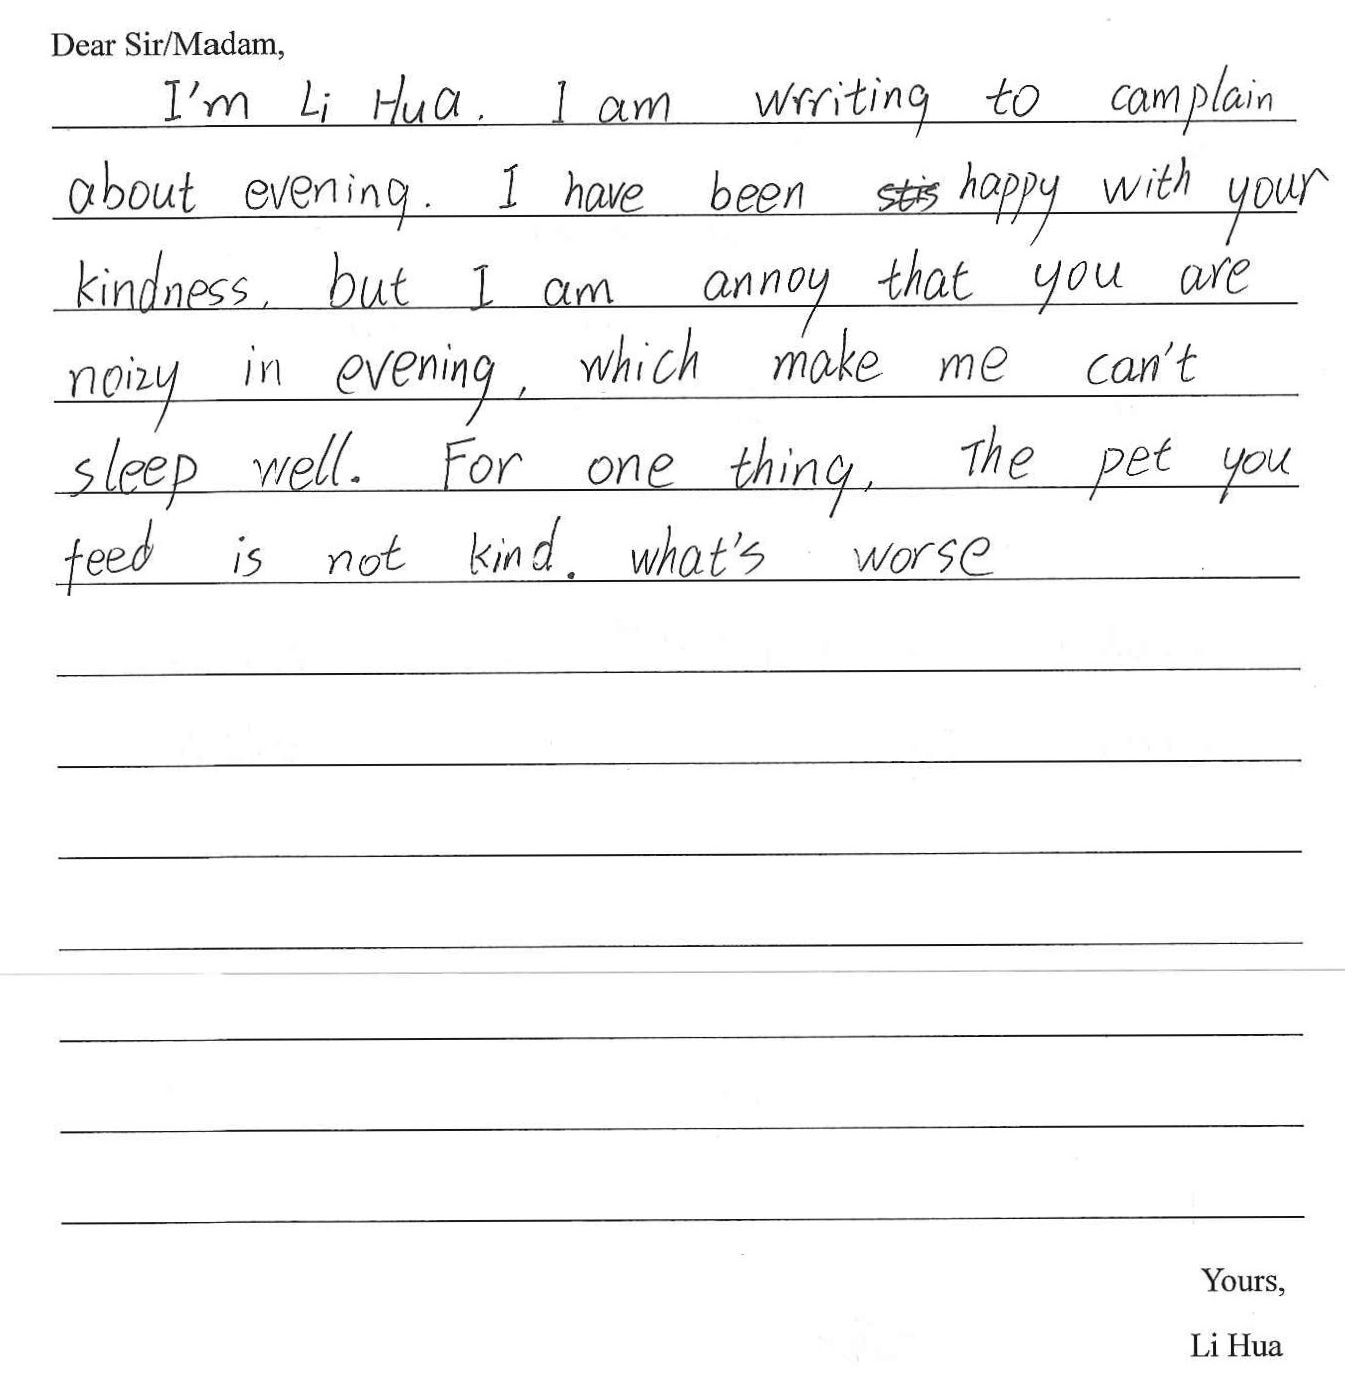 Dear Sir/Madam,
I'm Li Hua. I am wrriting to camplain
about evening. I have been happy with your
kindness, but I am annoy that you are
noizy in evening, which make me can't
sleep well. For one thing, The pet you
feed is not kind. what's worse
Yours,
Li Hua